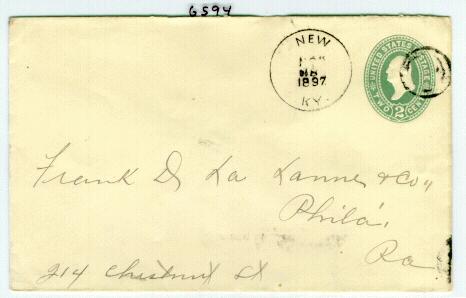 6594
NEW
MAR
1897
KY.
UNITED STATES POSTAGE
TWO 2 CENTS
Frank D. La Lanne & Co,,
Phila,
Pa
214 Chestnut St